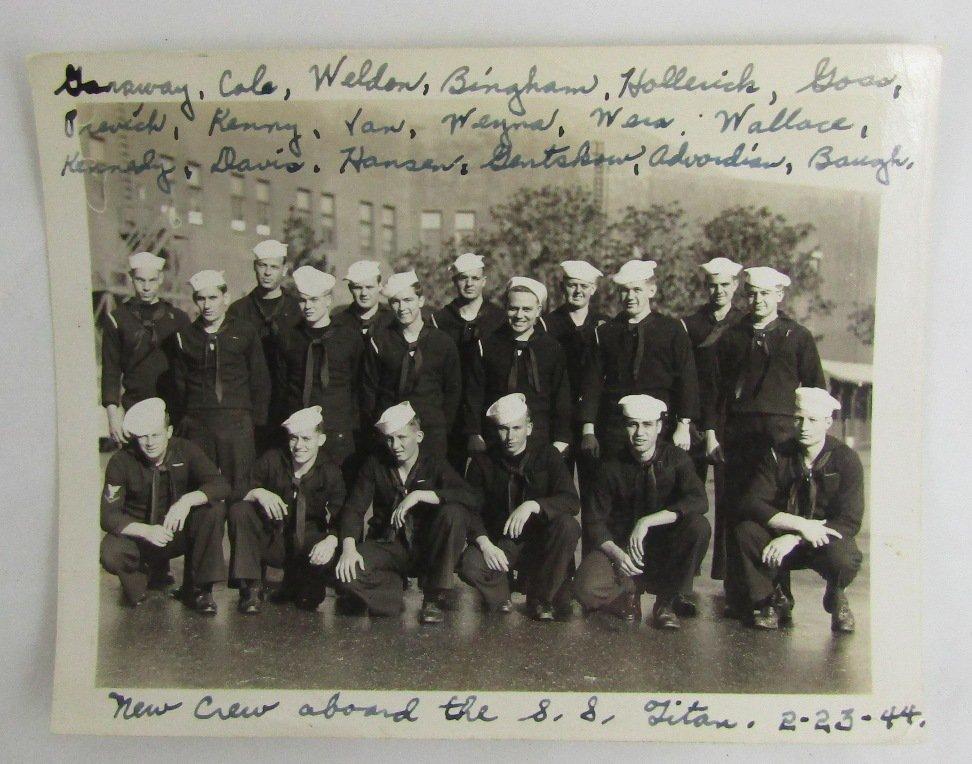 Garaway, Cole, Weldon, Bingham, Hollerich, Goss,
Previch, Kenny, Van, Weyna, Weis. Wallace,
Kennedy, Davis. Hansen, Gentskow, Advordian, Baugh.
New Crew aboard the S. S. Titan. 2-23-44.